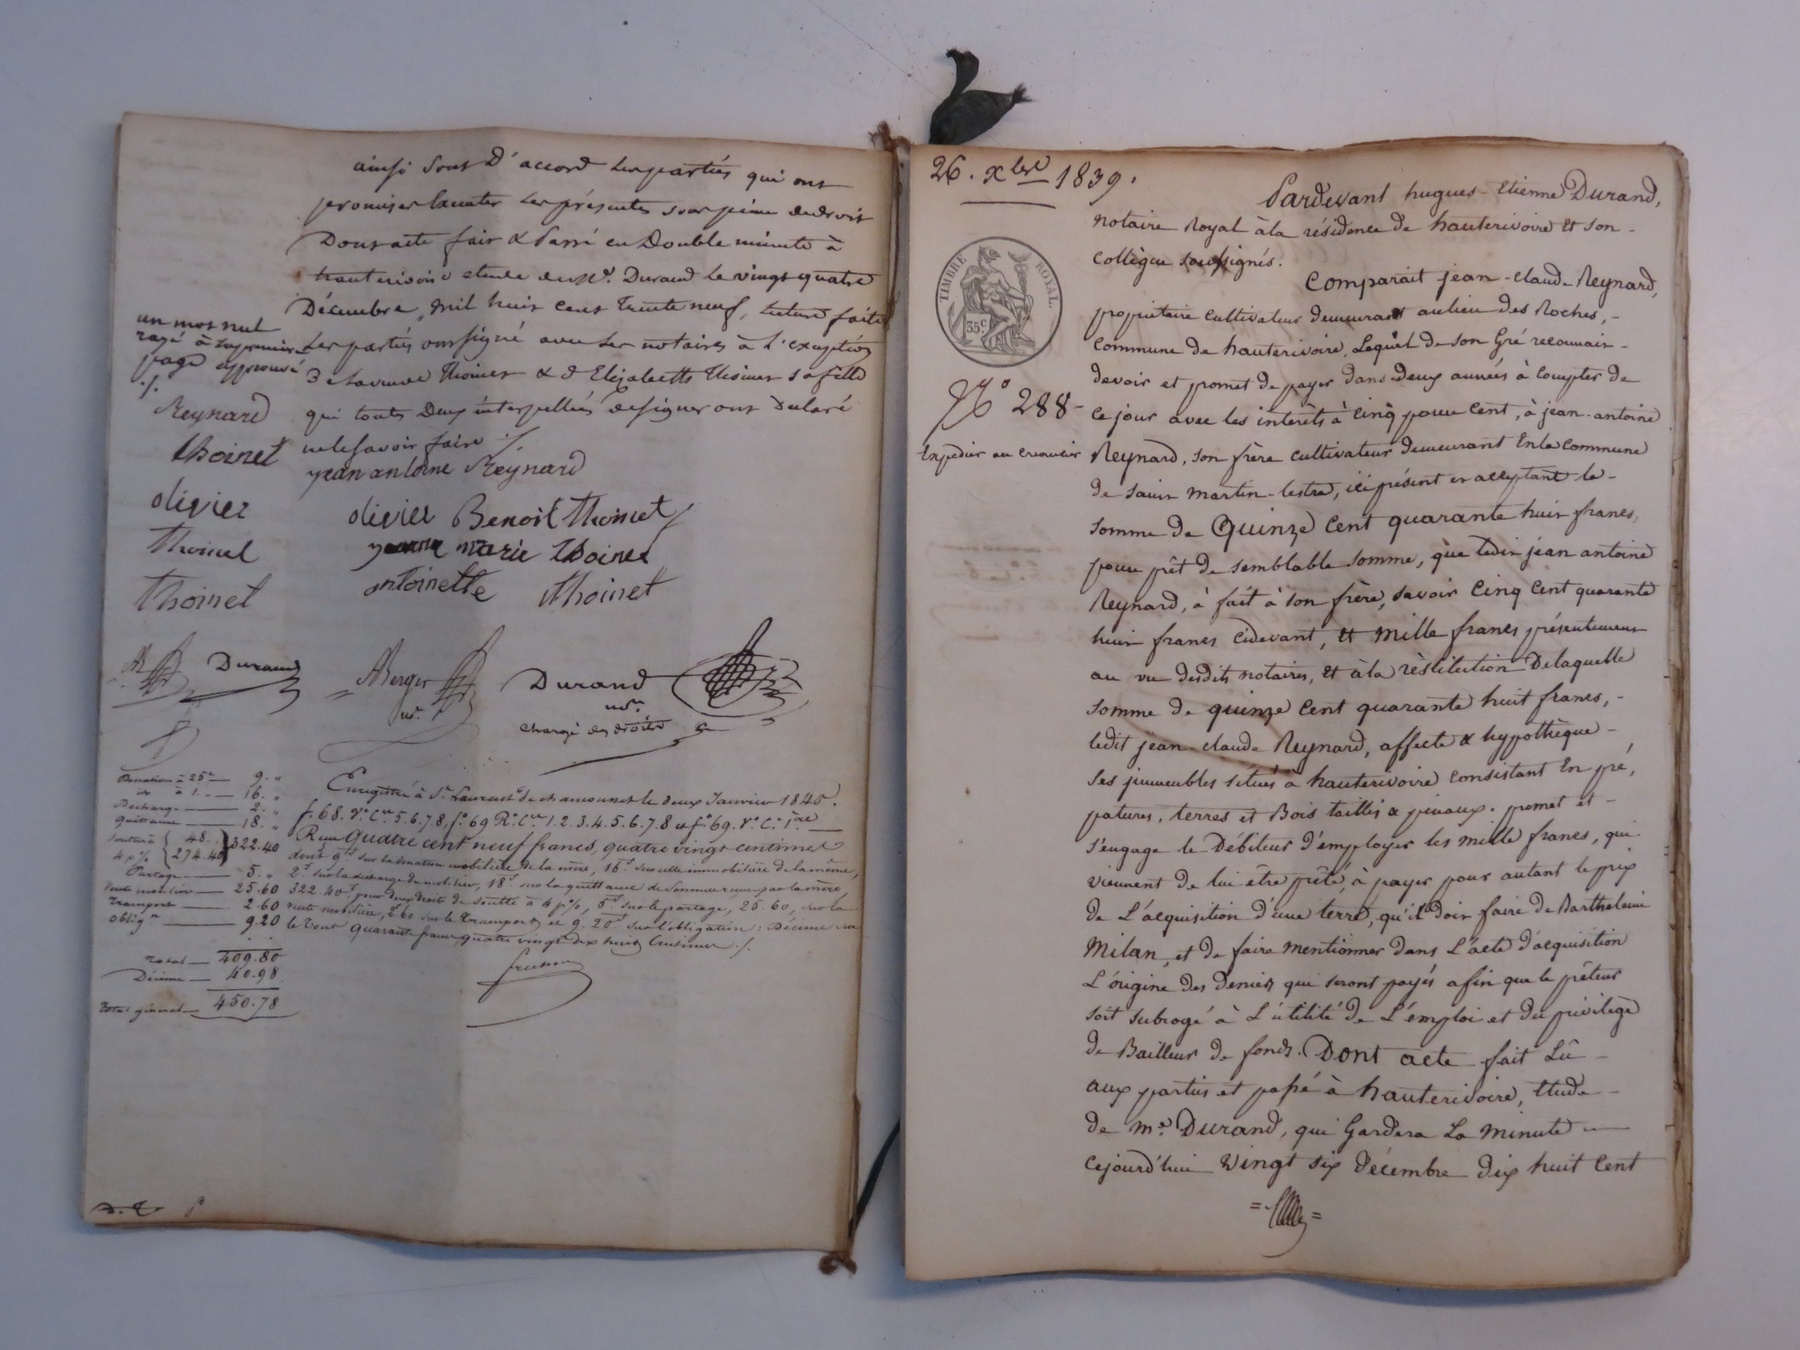 ainsi sont D'accord les parties qui ont
promis exécuter les présentes sous peine de droit
Dont acte fait & Passé en Double minute à
hauterivoire etude de Me. Durand le vingt quatre
Décembre, mil huit cent trente neuf, lecture faite
les parties ont signé avec les notaires à l'exception
de la veuve Thoinet & d'Elizabeth Thoinet sa fille
qui toutes Deux interpellées de signer ont Déclaré
ne le savoir faire ./.
un mot nul
rayé à la première
page approuvé
./.
Reynard
thoinet
olivier
Thoinet
thoinet
Durand
jean antoine Reynard
olivier Benoit thoinet
jeanne marie thoinet
antoinette thoinet
Berger
nre.
Durand
nre.
chargé des droits
Donation à 25c — 9. "
id à 1. — 16. "
Décharge — 2. "
quittance — 18. "
soulte à 4 p% { 48. . 274.40 } 322.40
Partage — 5. "
vente mobilière — 25.60
transport — 2.60
obligon — 9.20
Total — 409.80
Décime — 40.98
Total général — 450.78
Enregistré à St. Laurent de chamousset le deux Janvier 1840.
f. 68. Vo. Cen. 5. 6. 7. 8, fo. 69 Ro. Cen 1. 2. 3. 4. 5. 6. 7. 8 et fo. 69. Vo. C. 1ère
Reçu quatre cent neuf francs, quatre vingt centimes
dont 9f sur la donation mobilière de la mère, 16f sur celle immobilière de la même,
2f sur la décharge du mobilier, 18f sur la quittance de sommes reçues par la mère,
322.40f pour deux droits de soulte à 4 p%, 5f sur le partage, 25.60, sur la
vente mobilière, 2f60 sur le transport, et 9.20f sur l'obligation; Décime sur
le tout quarante francs quatre vingt dix huit Centimes ./.
26. xbre 1839.
TIMBRE ROYAL
35c.
No 288-
Expédié au créancier
Pardevant hugues-Etienne Durand,
notaire Royal à la résidence de hauterivoire et son-
collègue soussignés.
Comparait jean-claude Reynard,
propriétaire cultivateur demeurant au lieu des Roches,-
commune de hauterivoire, Lequel de son Gré reconnait-
devoir et promet de payer dans deux années à compter de
ce jour avec les intérêts à cinq pour cent, à jean-antoine
Reynard, son frère cultivateur demeurant En la commune
de saint martin-lestra, ici présent et acceptant la-
somme de Quinze cent quarante huit francs,
pour prêt de semblable somme, que ledit jean antoine
Reynard, à fait à son frère, savoir cinq cent quarante
huit francs cidevant, et mille francs présentement
au vu desdits notaires, et à la réstitution De laquelle
somme de quinze cent quarante huit francs,-
ledit jean-claude Reynard, affecte & hypothèque-
ses immeubles situés à hauterivoire consistant En pré,
patures, terres et Bois taillis & pinaux. promet et-
s'engage le Débiteur d'employer les mille francs, qui
viennent de lui être prêté, à payer pour autant le prix
de L'acquisition d'une terre, qu'il doit faire de Barthelemi
Milan, et de faire mentionner dans L'acte d'acquisition
L'origine des deniers qui seront payés afin que le prêteur
soit subrogé à L'utilité de L'emploi et du privilège
de Bailleur de fonds. Dont acte fait Lû-
aux parties et passé à hauterivoire, étude-
de me. Durand, qui Gardera La minute
cejourd'hui vingt six décembre dix huit cent